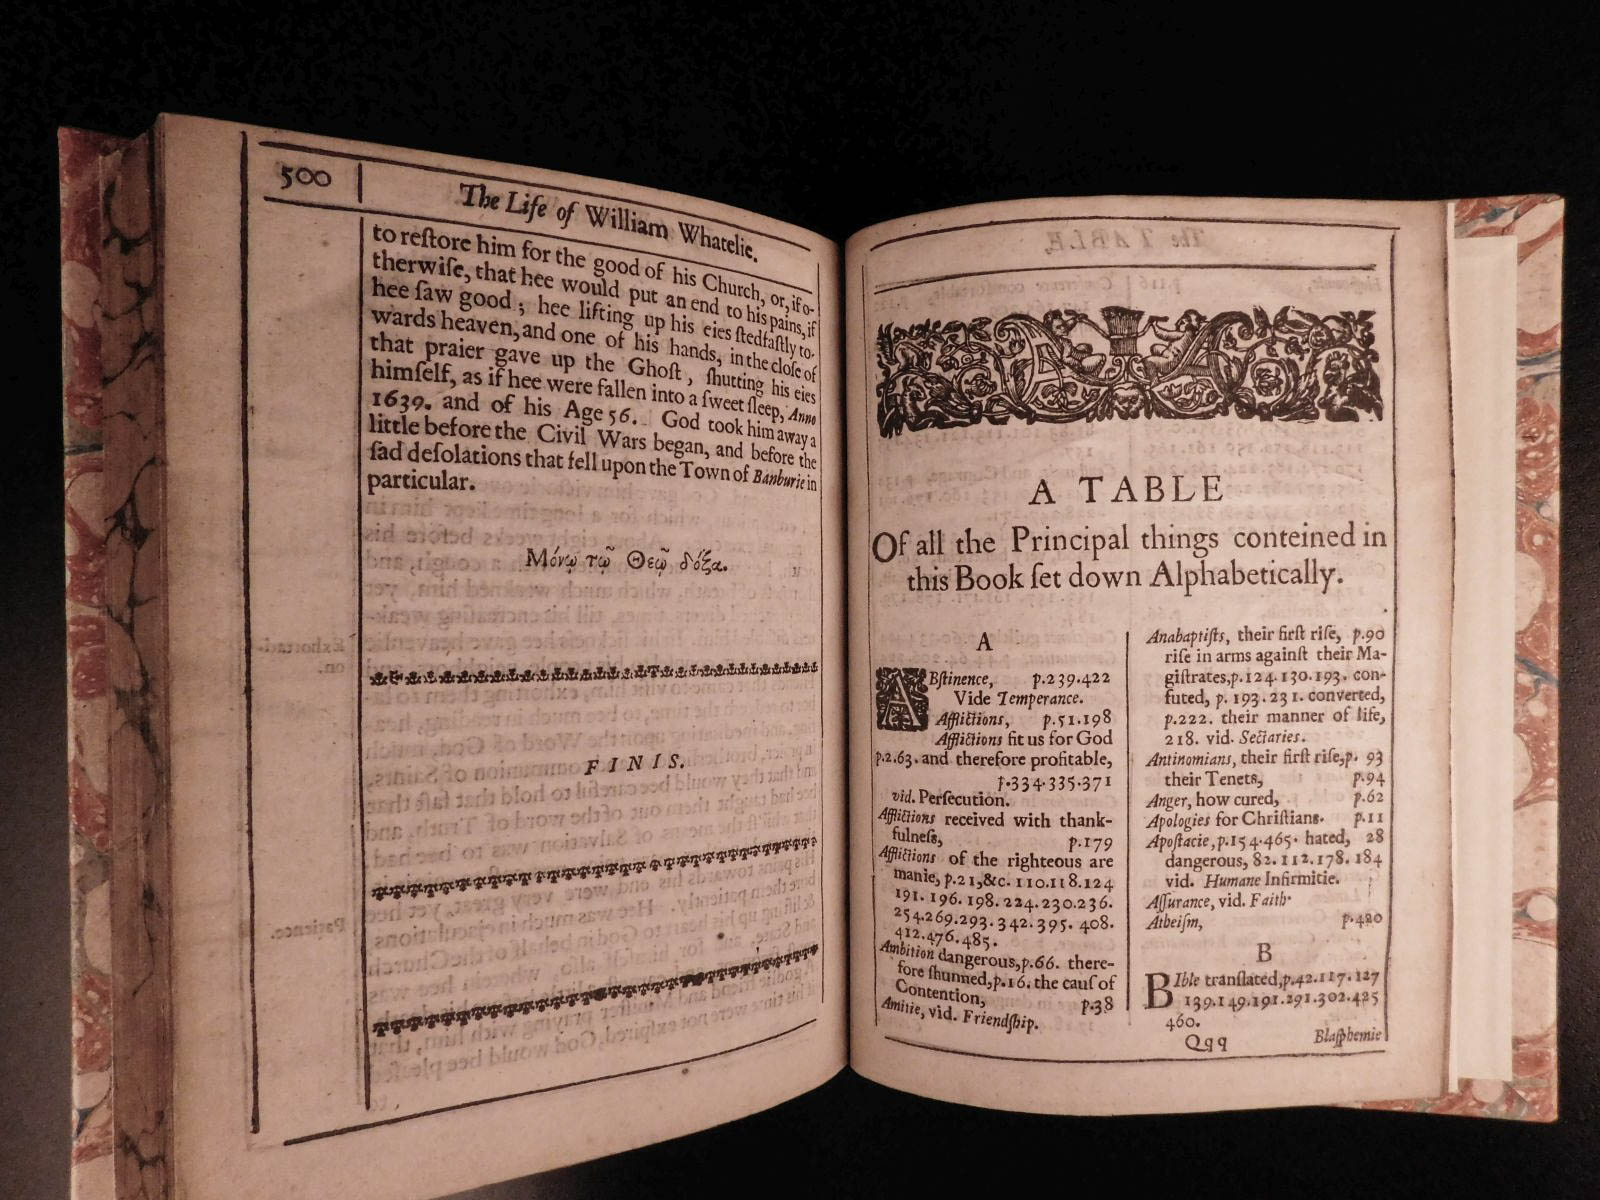 500
The Life of William Whatelie.
to reſtore him for the good of his Church, or, if o-
therwiſe, that hee would put an end to his pains, if
hee ſaw good; hee lifting up his eies ſtedfaſtly to-
wards heaven, and one of his hands, in the cloſe of
that praier gave up the Ghoſt, ſhutting his eies
himſelf, as if hee were fallen into a ſweet ſleep, Anno
1639. and of his Age 56. God took him away a
little before the Civil Wars began, and before the
ſad deſolations that fell upon the Town of Banburie in
particular.
Μόνῳ τῷ Θεῷ δόξα.
FINIS.
A TABLE
Of all the Principal things conteined in
this Book ſet down Alphabetically.
A
ABſtinence, p.239.422
Vide Temperance.
Afflictions, p.51.198
Afflictions fit us for God
p.2.63. and therefore profitable,
p.334.335.371
vid. Perſecution.
Afflictions received with thank-
fulneſs, p.179
Afflictions of the righteous are
manie, p.21,&c. 110.118.124
191.196.198.224.230.236.
254.269.293.342.395.408.
412.476.485.
Ambition dangerous, p.66. there-
fore ſhunned, p.16. the cauſ of
Contention, p.38
Amitie, vid. Friendſhip.
Anabaptiſts, their firſt riſe, p.90
riſe in arms againſt their Ma-
giſtrates, p.124.130.193. con-
futed, p.193.231. converted,
p.222. their manner of life,
218. vid. Sectaries.
Antinomians, their firſt riſe, p. 93
their Tenets, p.94
Anger, how cured, p.62
Apologies for Chriſtians. p.11
Apoſtacie, p.154.465. hated, 28
dangerous, 82.112.178.184
vid. Humane Infirmitie.
Aſſurance, vid. Faith.
Atheiſm, p.420
B
BIble tranſlated, p.42.117.127
139.149.191.291.302.425
460.
Qqq Blaſphemie